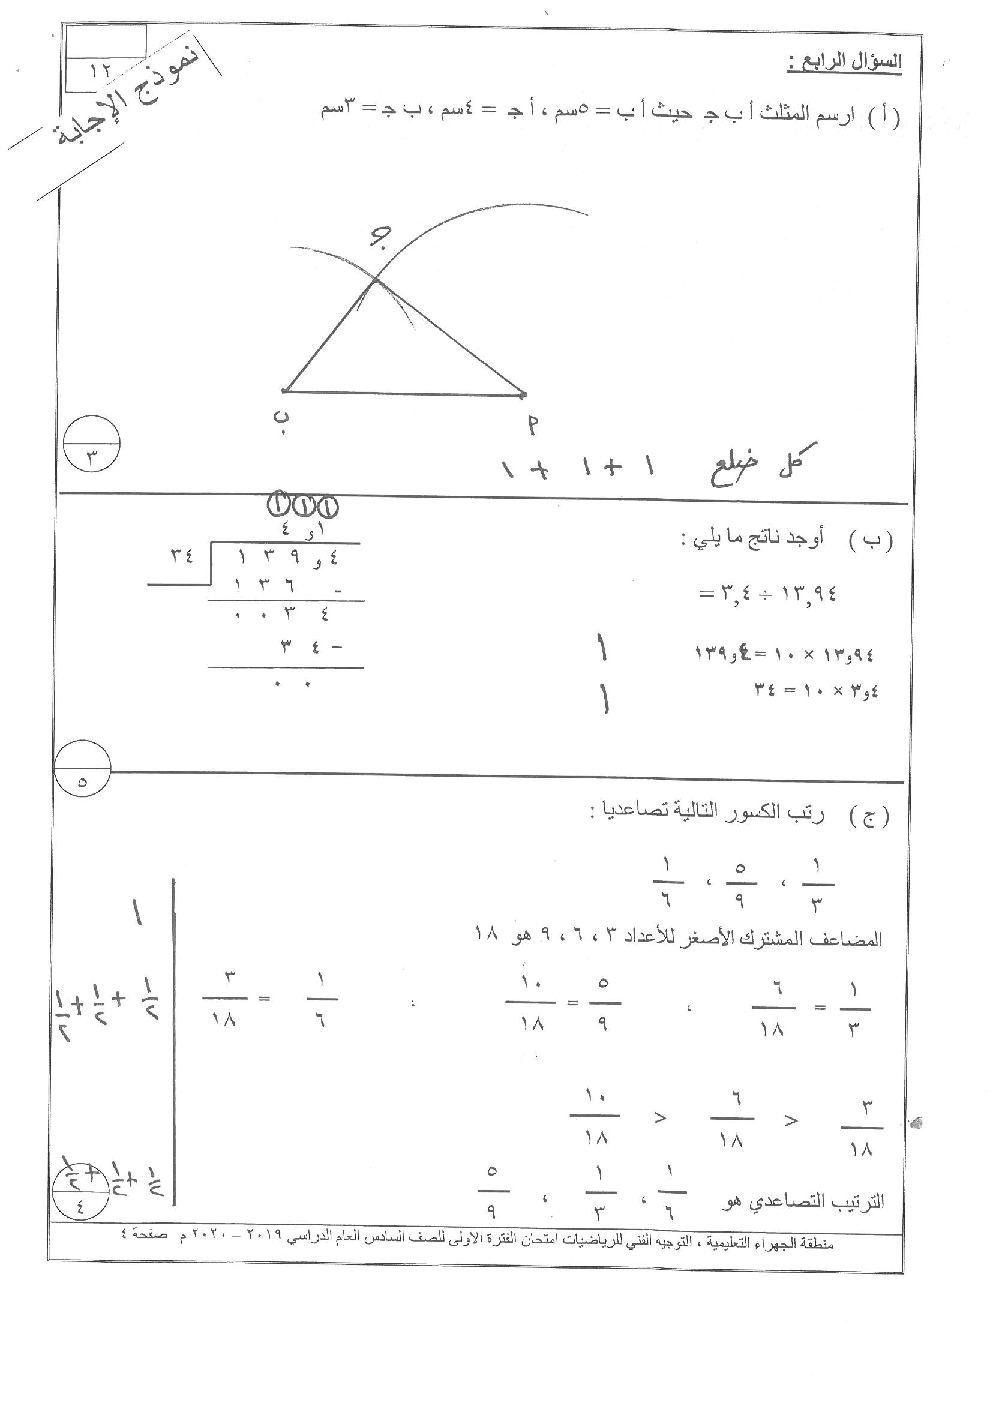 ١٢
نموذج الإجابة
السؤال الرابع :
( أ ) ارسم المثلث أ ب جـ حيث أ ب = ٥سم ، أ جـ = ٤سم ، ب جـ = ٣سم
جـ
ب
أ
كل ضلع ١ + ١ + ١
٣
( ب ) أوجد ناتج ما يلي :
١٣,٩٤ ÷ ٣,٤ =
٩٤و١٣ × ١٠ = ٤و١٣٩
١
٤و٣ × ١٠ = ٣٤
١
١ ١ ١
٤ و ١
٣٤
١ ٣ ٩ و ٤
١ ٣ ٦ -
٠ ٠ ٣ ٤
٣ ٤ -
٠ ٠
٥
( ج ) رتب الكسور التالية تصاعديا :
١/٣ ، ٥/٩ ، ١/٦
المضاعف المشترك الأصغر للأعداد ٣ ، ٦ ، ٩ هو ١٨
١
١/٣ = ٦/١٨ ، ٥/٩ = ١٠/١٨ ، ١/٦ = ٣/١٨
١/٢ + ١/٢ + ١/٢
٣/١٨ < ٦/١٨ < ١٠/١٨
الترتيب التصاعدي هو ١/٦ ، ١/٣ ، ٥/٩
١/٢ + ١/٢ + ١/٢
٤
منطقة الجهراء التعليمية ، التوجيه الفني للرياضيات امتحان الفترة الاولى للصف السادس العام الدراسي ٢٠١٩ – ٢٠٢٠ م صفحة ٤